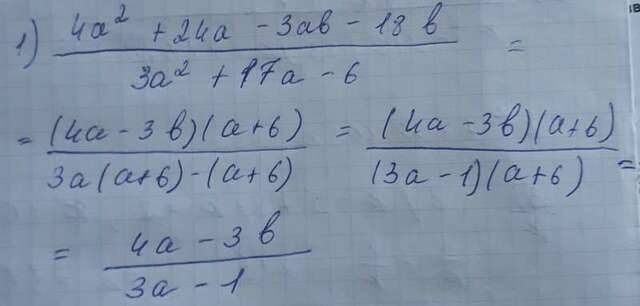 1) (4a² + 24a - 3ab - 18b) / (3a² + 17a - 6) =
= ((4a - 3b)(a+6)) / (3a(a+6) - (a+6)) = ((4a - 3b)(a+6)) / ((3a - 1)(a+6)) =
= (4a - 3b) / (3a - 1)